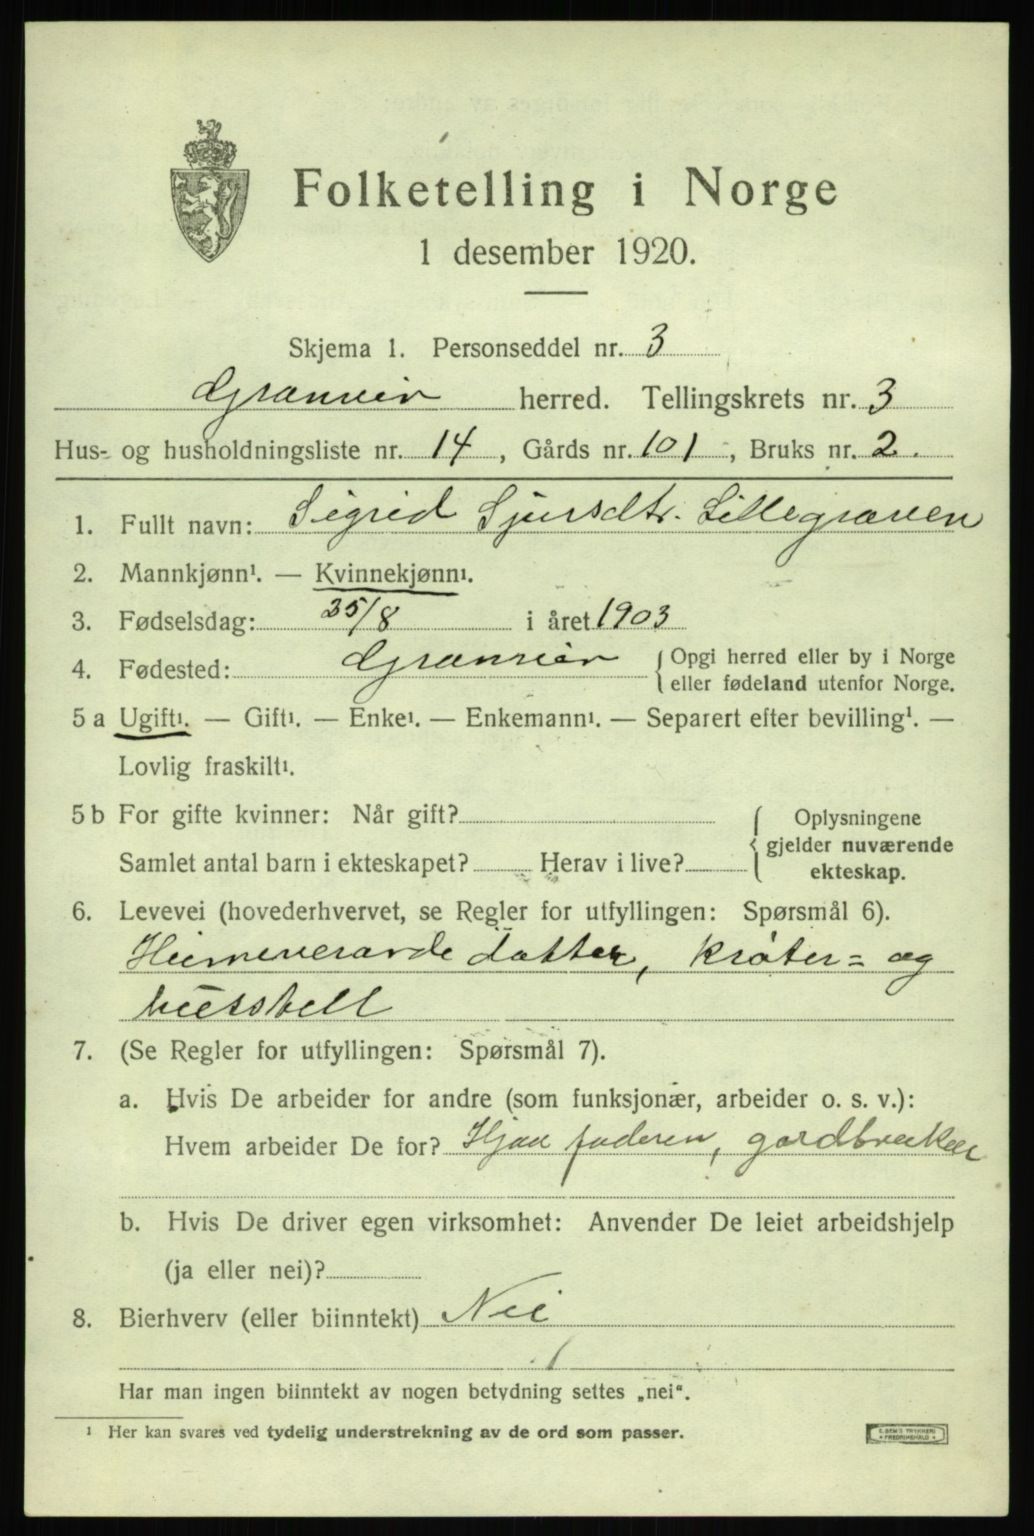 Folketelling i Norge
1 desember 1920.
Skjema 1. Personseddel nr. 3
Granvin herred. Tellingskrets nr. 3
Hus- og husholdningsliste nr. 14, Gårds nr. 101, Bruks nr. 2.
1. Fullt navn: Sigrid Sjursdtr. Lillegraven
2. Mannkjønn¹. — Kvinnekjønn¹.
3. Fødselsdag: 25/8 i året 1903
4. Fødested: Granvin { Opgi herred eller by i Norge
eller fødeland utenfor Norge.
5 a Ugift¹. — Gift¹. — Enke¹. — Enkemann¹. — Separert efter bevilling¹. —
Lovlig fraskilt¹.
5 b For gifte kvinner: Når gift? { Oplysningene
gjelder nuværende
Samlet antal barn i ekteskapet? Herav i live? ekteskap.
6. Levevei (hovederhvervet, se Regler for utfyllingen: Spørsmål 6).
Heimeverande datter, krøter- og
husstell
7. (Se Regler for utfyllingen: Spørsmål 7).
a. Hvis De arbeider for andre (som funksjonær, arbeider o. s. v.):
Hvem arbeider De for? Hjaa faderen, gardbrukar
b. Hvis De driver egen virksomhet: Anvender De leiet arbeidshjelp
(ja eller nei)?
8. Bierhverv (eller biinntekt) Nei
Har man ingen biinntekt av nogen betydning settes „nei".
¹ Her kan svares ved tydelig understrekning av de ord som passer.
E. SEM'S TRYKKERI
FREDRIKSHALD